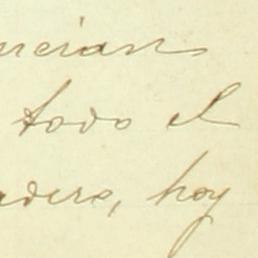 ncian
todo el
adero, hoy